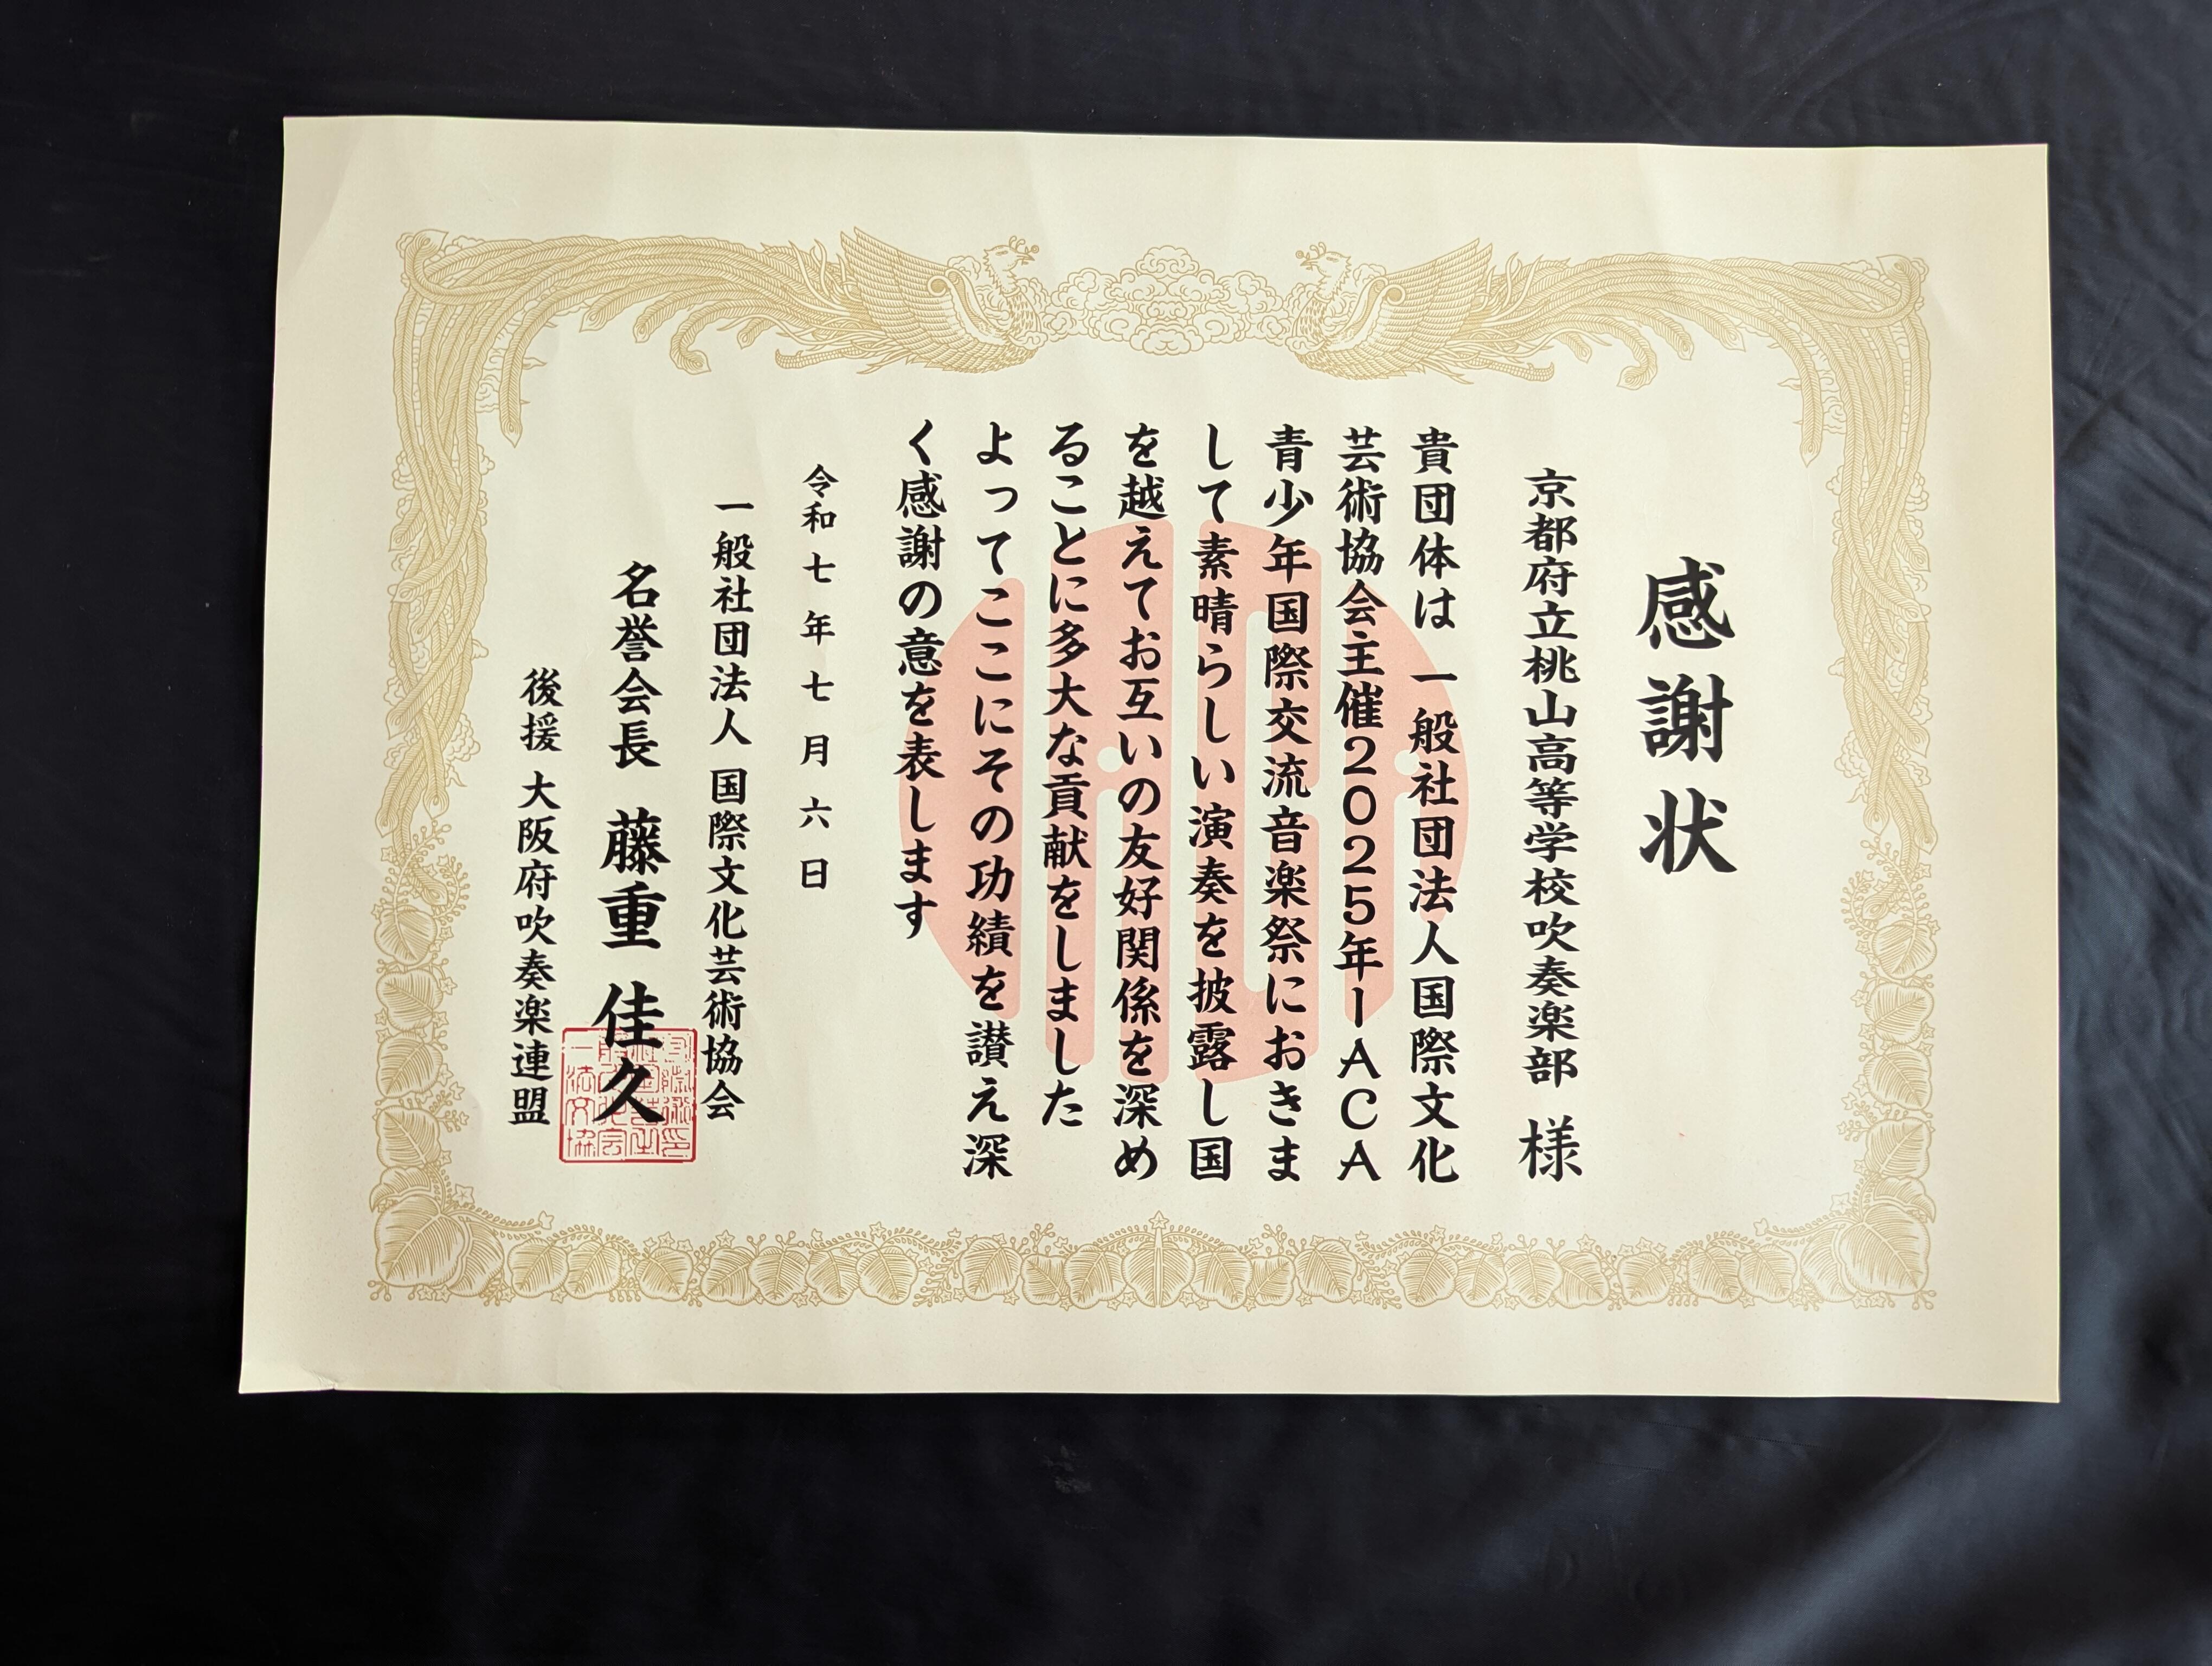 感謝状
京都府立桃山高等学校吹奏楽部 様
貴団体は 一般社団法人国際文化
芸術協会主催2025年IACA
青少年国際交流音楽祭におきま
して素晴らしい演奏を披露し国
を越えてお互いの友好関係を深め
ることに多大な貢献をしました
よってここにその功績を讃え深
く感謝の意を表します
令和七年七月六日
一般社団法人 国際文化芸術協会
名誉会長 藤重 佳久
後援 大阪府吹奏楽連盟